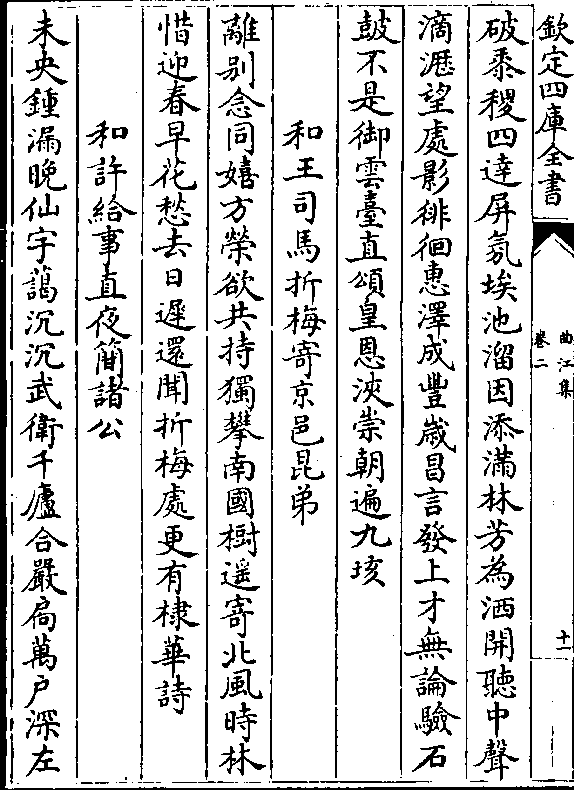 欽定四庫全書
曲江集
卷二
十一
破黍稷四達屏氛埃池溜因添滿林芳為洒開聽中聲
滴瀝望處影徘徊惠澤成豐歲昌言發上才無論驗石
皷不是御雲臺直頌皇恩浹崇朝遍九垓
和王司馬折梅寄京邑昆弟
離别念同嬉方榮欲共持獨攀南國樹遥寄北風時林
惜迎春早花愁去日遲還聞折梅處更有棣華詩
和許給事直夜簡諸公
未央鍾漏晚仙宇藹沉沉武衛千廬合嚴扃萬户深左